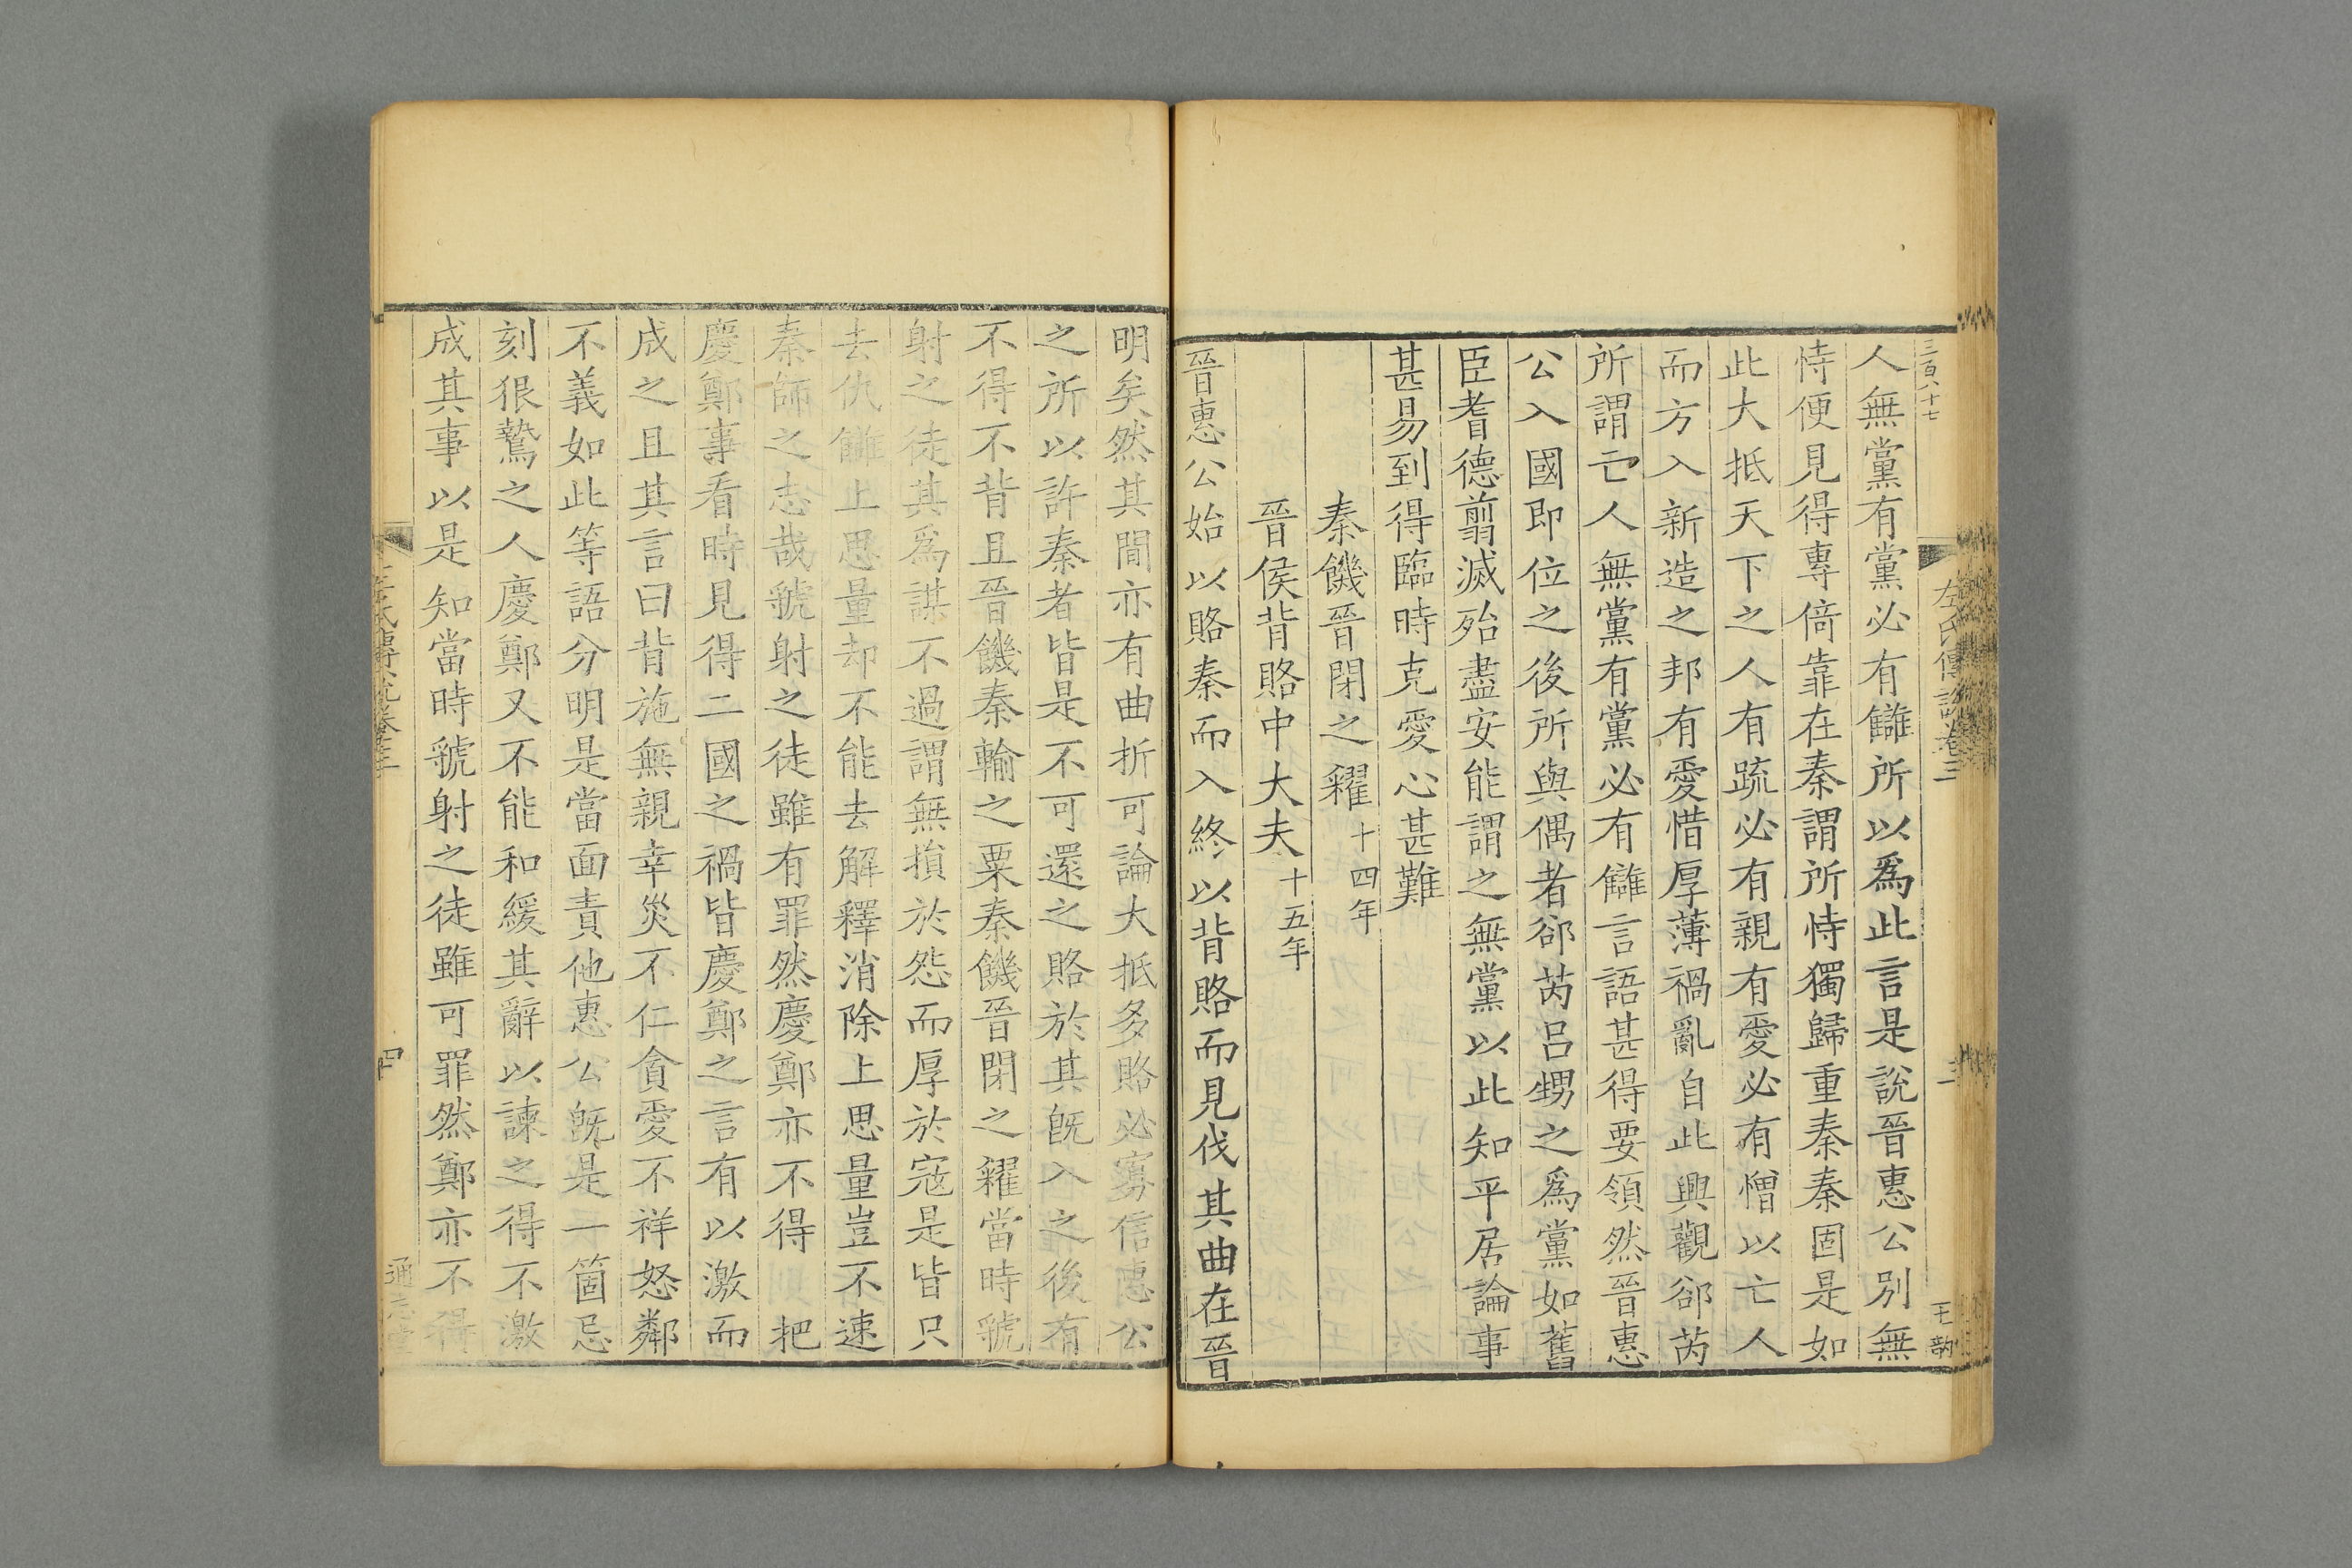 三百八十七
左氏傳說卷三
三
王
人無黨有黨必有讎所以爲此言是說晉惠公別無
恃便見得專倚靠在秦謂所恃獨歸重秦秦固是如
此大抵天下之人有䟽必有親有愛必有憎以亡人
而方入新造之邦有愛惜厚薄禍亂自此興觀郤芮
所謂亡人無黨有黨必有讎言語甚得要領然晉惠
公入國即位之後所與偶者郤芮呂甥之爲黨如舊
臣耆德翦滅殆盡安能謂之無黨以此知平居論事
甚易到得臨時克愛心甚難
秦饑晉閉之糴十四年
晉侯背賂中大夫十五年
晉惠公始以賂秦而入終以背賂而見伐其曲在晉
明矣然其間亦有曲折可論大抵多賂必寡信惠公
之所以許秦者皆是不可還之賂於其旣入之後有
不得不背且晉饑秦輸之粟秦饑晉閉之糴當時虢
射之徒其爲謀不過謂無損於怨而厚於寇是皆只
去仇讎上思量却不能去解釋消除上思量豈不速
秦師之志哉虢射之徒雖有罪然慶鄭亦不得則把
慶鄭事看時見得二國之禍皆慶鄭之言有以激而
成之且其言曰背施無親幸災不仁貪愛不祥怒鄰
不義如此等語分明是當面責他惠公旣是一箇忌
刻很鷙之人慶鄭又不能和緩其辭以諫之得不激
成其事以是知當時虢射之徒雖可罪然鄭亦不得
左氏傳說卷三
四
通志堂